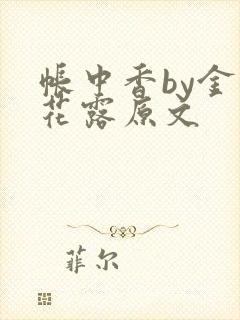 帐中香by金
花露原文
菲尔